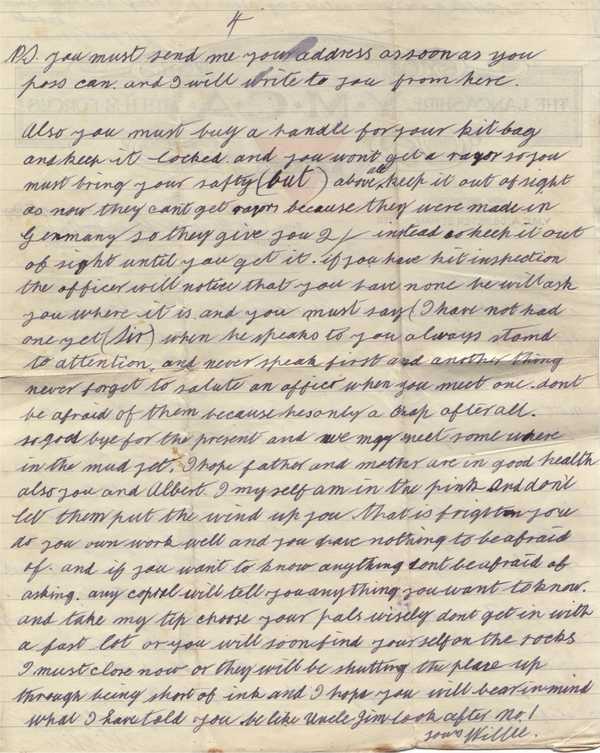 4
P.S. you must send me your address as soon as you
poss can. and I will write to you from here.
Also you must buy a handle for your kit bag
and keep it locked and you wont get a razor so you
must bring your safty (but) above all keep it out of sight
as now they cant get razors because they were made in
Germany so they give you 2/ instead so keep it out
of sight until you get it. if you have kit inspection
the officer will notice that you have none he will ask
you where it is and you must say (I have not had
one yet (Sir) when he speaks to you always stand
to attention. and never speak first and another thing
never forget to salute an officer when you meet one. dont
be afraid of them because hes only a chap after all.
so good bye for the present and we may meet some where
in the mud yet. I hope father and mother are in good health
also you and Albert. I my self am in the pink and don't
let them put the wind up you that is frighten you
do you own work well and you have nothing to be afraid
of. and if you want to know anything dont be afraid of
asking. any copral will tell you anything you want to know.
and take my tip choose your pals wisely dont get in with
a fast lot or you will soon find yourself on the rocks
I must close now or they will be shutting the place up
through being short of ink and I hope you will bear in mind
what I have told you be like Uncle Jim look after No. 1
yours Willie.